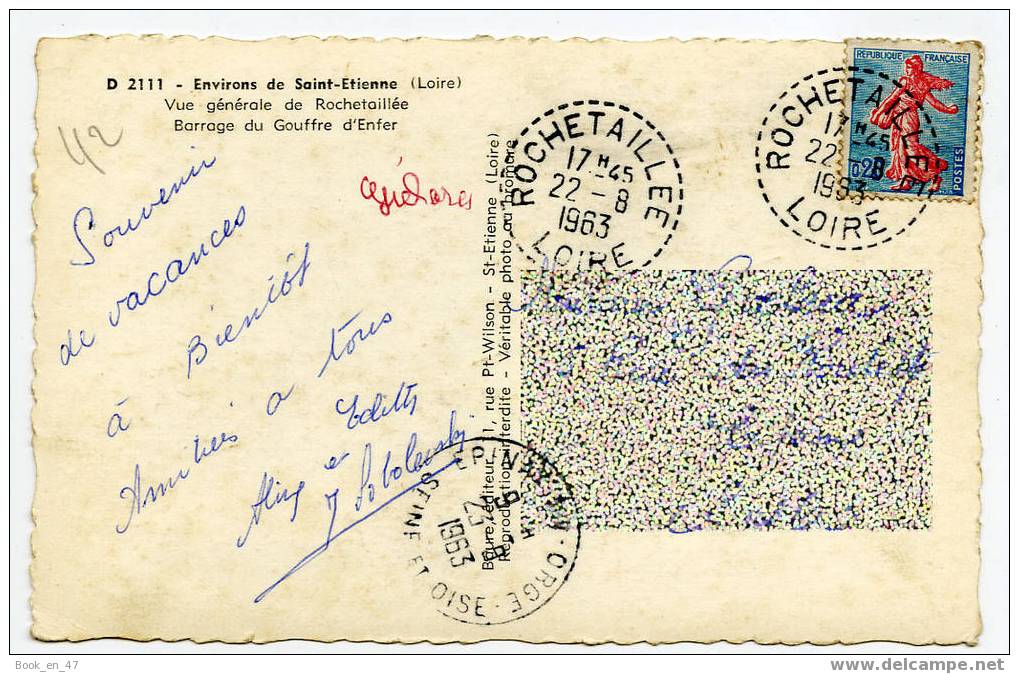 D 2111 - Environs de Saint-Etienne (Loire)
Vue générale de Rochetaillée
Barrage du Gouffre d'Enfer
42
Souvenir
de vacances
à Bientôt
Amitiés a tous
Aline et Edith
J Sobolewski
Pt-Wilson - St-Etienne (Loire)
Reproduction interdite - Véritable photo au bromure
ROCHETAILLEE
17 H 45
22 - 8
1963
LOIRE
ROCHETAILLEE
17 H 45
22 - 8
1963
LOIRE
REPUBLIQUE FRANÇAISE
0,20
POSTES
ORGE
1963
SEINE ET OISE
Book_en_47
www.delcampe.net